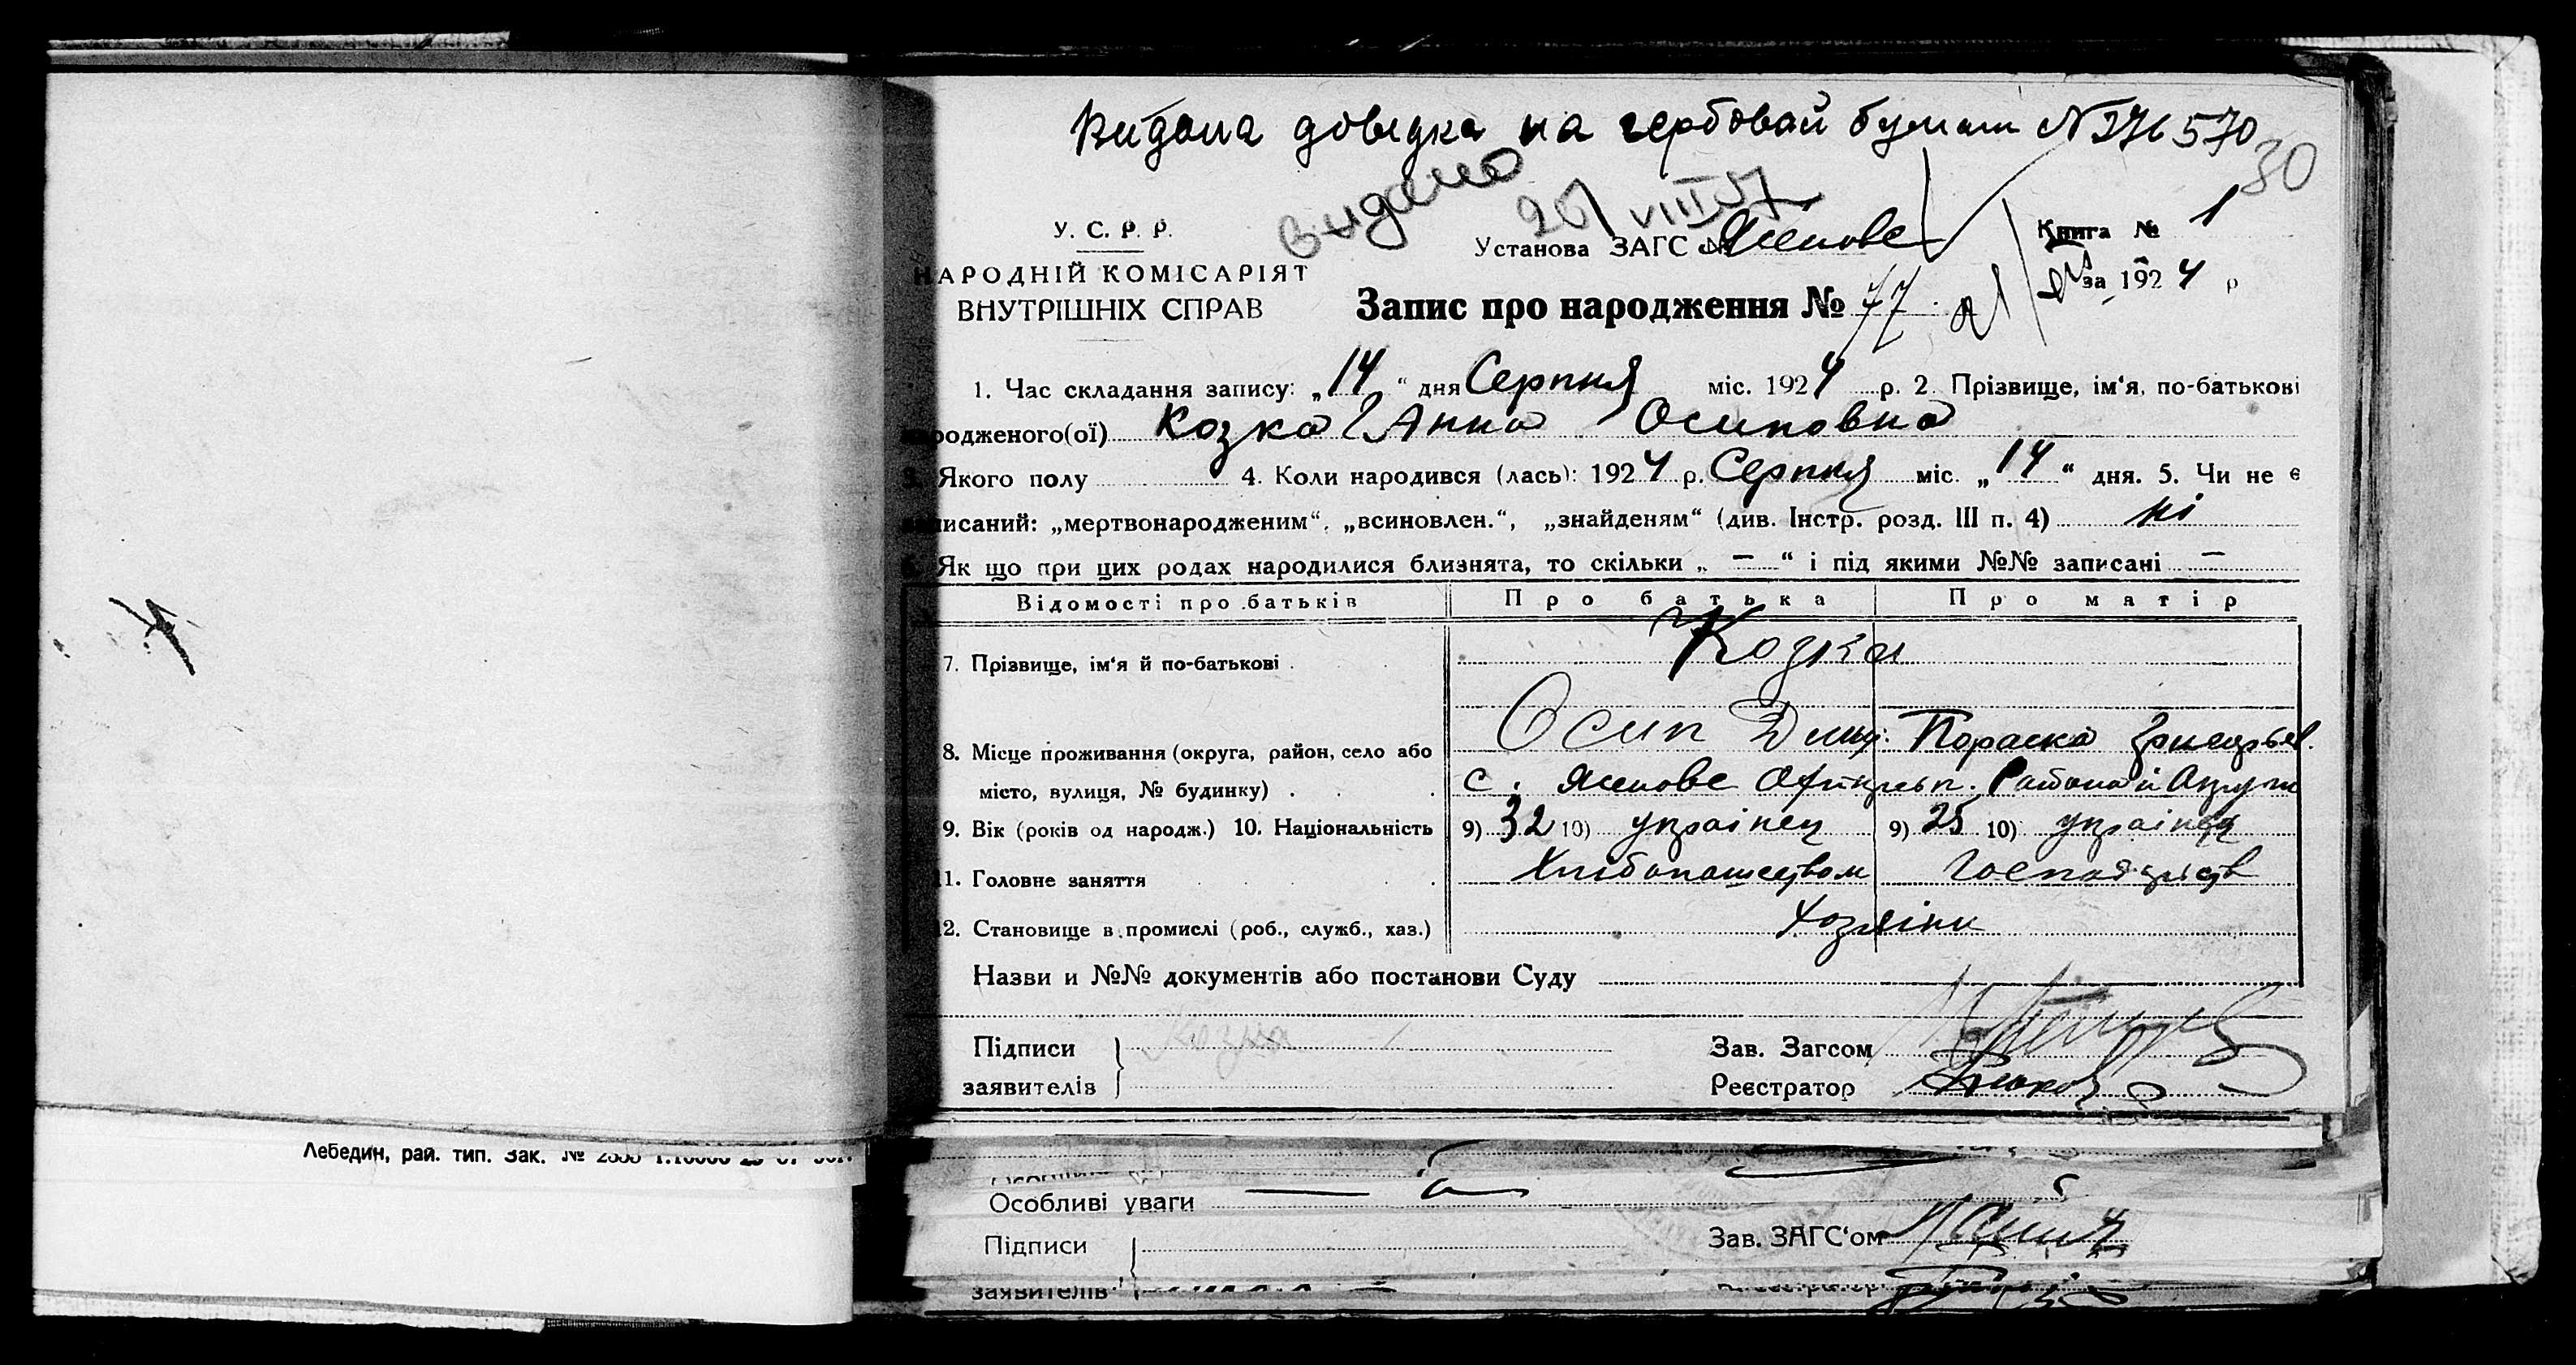 Видана довідка на гербовай бумаги № 276570
30
Видано
У. С. Р. Р.
Установа ЗАГС Ясенове
Книга № 1
НАРОДНІЙ КОМІСАРІЯТ
за 1924 р
ВНУТРІШНІХ СПРАВ
Запис про народження № 77
1. Час складання запису: „14“ дня Серпня міс. 1924 р. 2. Прізвище, ім‘я, по-батькові
народженого(ої) Козка Анна Осиповна
3. Якого полу 4. Коли народився (лась): 1924 р. Серпня міс. „14“ дня. 5. Чи не є
записаний: „мертвонародженим“, „всиновлен.“, „знайденям“ (див. Інстр. розд. III п. 4) ні
6. Як що при цих родах народилися близнята, то скільки „ — “ і під якими №№ записані —
Відомості про батьків Про батька Про матір
7. Прізвище, ім‘я й по-батькові Козка
Осип Пораска
8. Місце проживання (округа, район, село або
місто, вулиця, № будинку) с. Ясенове
9. Вік (років од народж.) 10. Національність 9) 32 10) українец 9) 25 10) українец
11. Головне заняття Хлібопашеством
12. Становище в промислі (роб., служб., хаз.) Хозяіни
Назви и №№ документів або постанови Суду
Підписи Козка
Зав. Загсом
заявителів
Реєстратор
Лебедин, рай. тип. Зак. №
Особливі уваги
Підписи
Зав. ЗАГС‘ом
заявителів